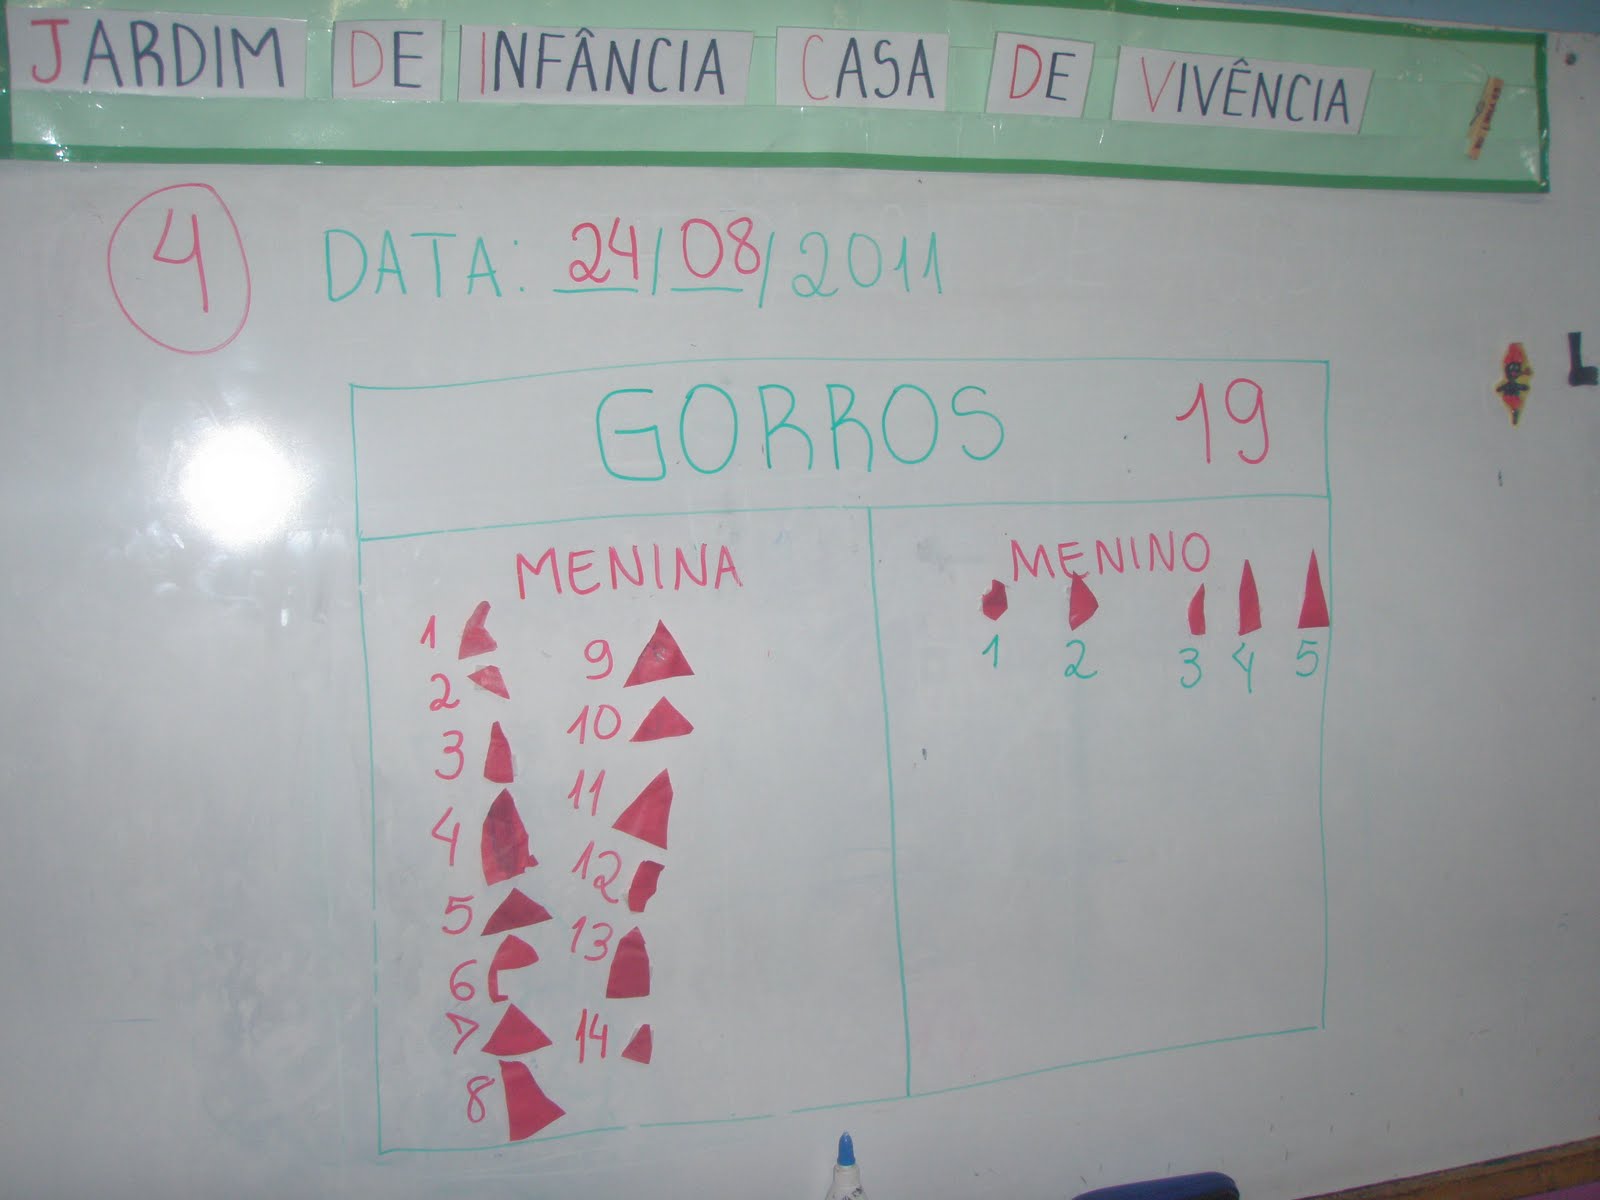 JARDIM DE INFÂNCIA CASA DE VIVÊNCIA
4
DATA: 24/08/2011
GORROS 19
MENINA
1
2
3
4
5
6
7
8
9
10
11
12
13
14
MENINO
1 2 3 4 5